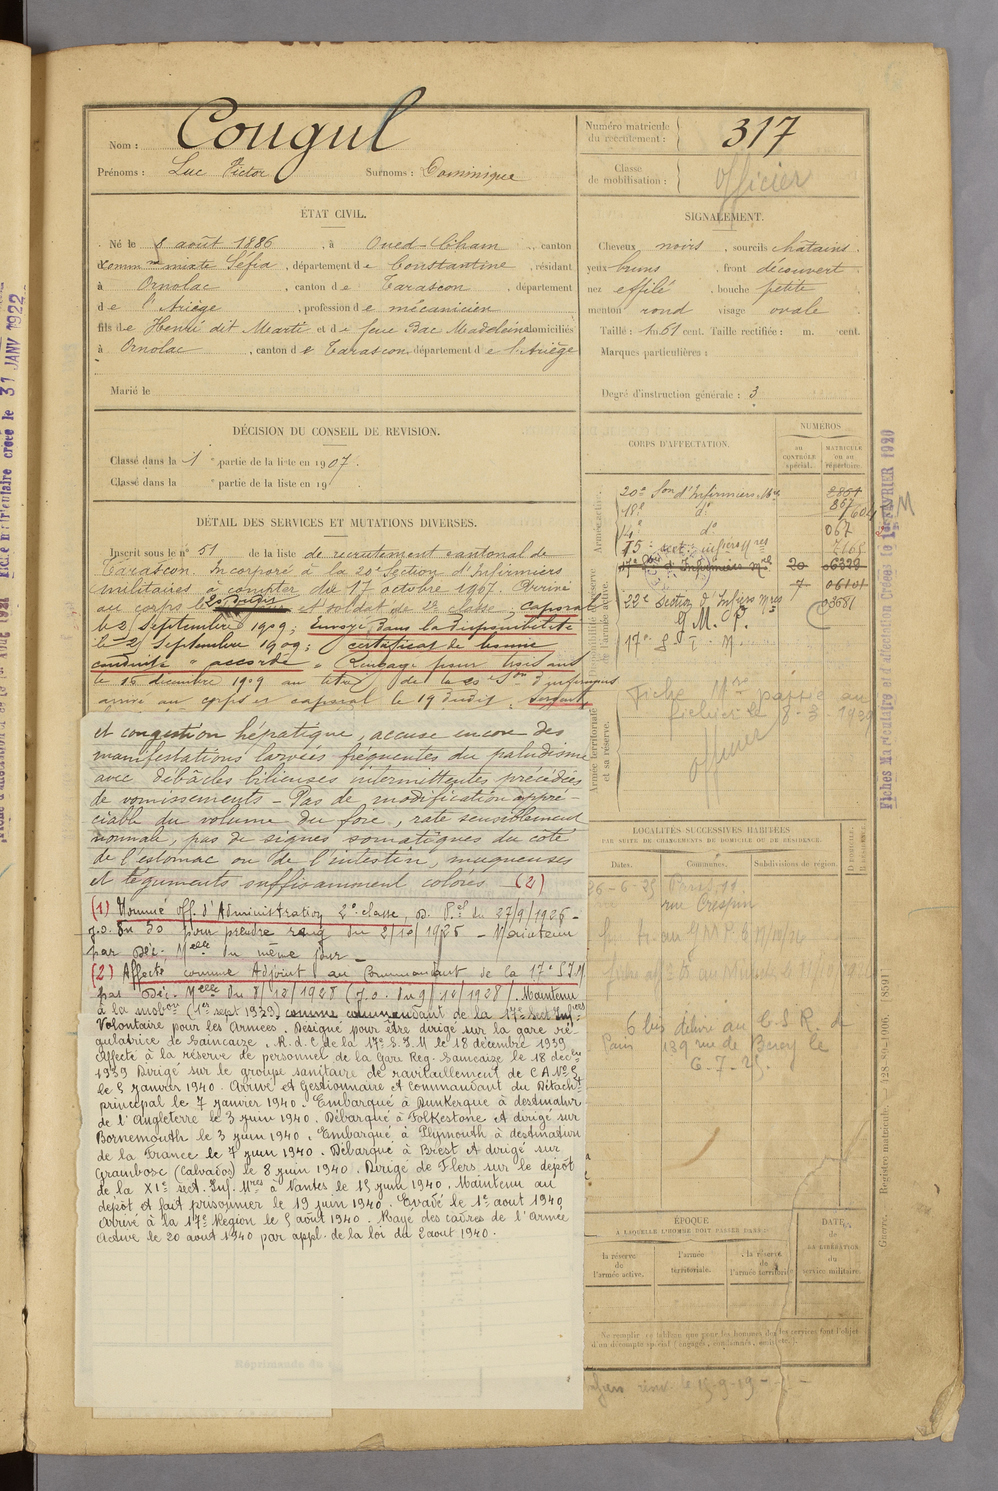 Nom : Cougul
Prénoms : Luc Victor Surnoms : Dominique
Numéro matricule du recrutement : 317
Classe de mobilisation : Officier
ÉTAT CIVIL.
Né le 8 août 1886, à Oued-Cham, canton
Comm ne mixte Séfia, département de Constantine, résidant
à Ornolac, canton de Tarascon, département
de l'Ariège, profession de mécanicien
fils de Henri dit Marti et de feue Bac Madeleine domiciliés
à Ornolac, canton de Tarascon, département de l'Ariège
Marié le
SIGNALEMENT.
Cheveux noirs, sourcils châtains.
yeux bruns, front découvert.
nez effilé, bouche petite
menton rond visage ovale
Taille : 1 m. 61 cent. Taille rectifiée : m. cent.
Marques particulières :
Degré d'instruction générale : 3
DÉCISION DU CONSEIL DE REVISION.
Classé dans la 1 e partie de la liste en 1907.
Classé dans la e partie de la liste en 19
DÉTAIL DES SERVICES ET MUTATIONS DIVERSES.
Inscrit sous le n° 51 de la liste de recrutement cantonal de
Tarascon. Incorporé à la 20e Section d'Infirmiers
militaires à compter du 17 octobre 1907. Arrivé
au corps le et soldat de 2e classe ; Caporal
le 2 Septembre 1909 ; Envoyé dans la disponibilité
le 2 Septembre 1909 ; certificat de bonne
conduite " accordé " Rengagé pour trois ans
le 16 décembre 1909 au titre de la Son d'infirmiers
arrivé au corps et caporal le 19 dudit, sergent
et congestion hépatique, accuse encore des
manifestations larvées fréquentes du paludisme
avec débâcles bilieuses intermittentes précédées
de vomissements - Pas de modification appré-
ciable du volume du foie, rate sensiblement
normale, pas de signes somatiques du côté
de l'estomac ou de l'intestin, muqueuses
et téguments suffisamment colorés (2)
(1) Nommé off. d'Administration 2e classe, D. P.el du 27/9/1926 -
J.O. du 30 pour prendre rang du 2/10/1926 - Maintenu
par Déc. Melle du même jour -
(2) Affecté comme Adjoint au Commandant de la 17e S.I.M.
par Déc. Melle du 8/12/1928 (J.O. du 9/12/1928). Maintenu
à la mobon (1er sept 1939) comme commandant de la 17e Sect Infiers
Volontaire pour les Armées. Désigné pour être dirigé sur la gare ré-
gulatrice de Saincaize. R.d.C de la 17e S.I.M le 18 décembre 1939
affecté à la réserve de personnel de la Gare Reg. Saincaize le 18 décbre
1939 Dirigé sur le groupe sanitaire de ravitaillement de C A N° 5
le 5 janvier 1940. Arrivé et Gestionnaire et Commandant du Détacht
principal le 7 janvier 1940. Embarqué à Dunkerque à destination
de l'Angleterre le 3 juin 1940. Débarqué à Folkestone et dirigé sur
Bornemouth le 3 juin 1940. Embarqué à Plymouth à destination
de la France le 7 juin 1940. Débarqué à Brest et dirigé sur
Grambosc (Calvados) le 8 juin 1940. Dirigé de Flers sur le depôt
de la XIe sect. Inf. Mres à Nantes le 15 juin 1940. Maintenu au
depôt et fait prisonnier le 19 juin 1940. Evadé le 1er aout 1940
Arrivé à la 17e Region le 5 août 1940. Rayé des cadres de l'Armée
active le 20 aout 1940 par appl. de la loi du 2 aout 1940.
CORPS D'AFFECTATION.
NUMÉROS
AU CONTRÔLE spécial.
MATRICULE ou au répertoire.
Armée active.
20e Son d'Infirmiers Mres
18e do
14e do 067
15e sect. infiers Mres
17e d'Infirmiers Mres 20 06323
7 06101
22e Section d'Infiers Mres
G. M. P.
17e S I M
Armée territoriale et sa réserve.
Fiche Mre passée au
fichier le 8-3-1939
Officier
LOCALITÉS SUCCESSIVES HABITÉES
PAR SUITE DE CHANGEMENTS DE DOMICILE OU DE RÉSIDENCE.
Dates. Communes. Subdivisions de région.
26-6-25 Paris 11.
rue Crespin
6 bis délivré au C.S.R. de
Paris 139 rue de Bercy le
6-7-25.
ÉPOQUE
À LAQUELLE L'HOMME DOIT PASSER DANS
la réserve de l'armée active.
l'armée territoriale.
la réserve de l'armée territoriale
DATE de LA LIBÉRATION du service militaire.
Ne remplir ce tableau que pour les hommes dont les services font l'objet
d'un décompte spécial (engagés, condamnés, omis, etc.).
Fiches Matriculaire et d'affectation Créées le FÉVRIER 1920
Guerre. Registre matricule. — 128-89-2006. [859]
31 JANV 1922